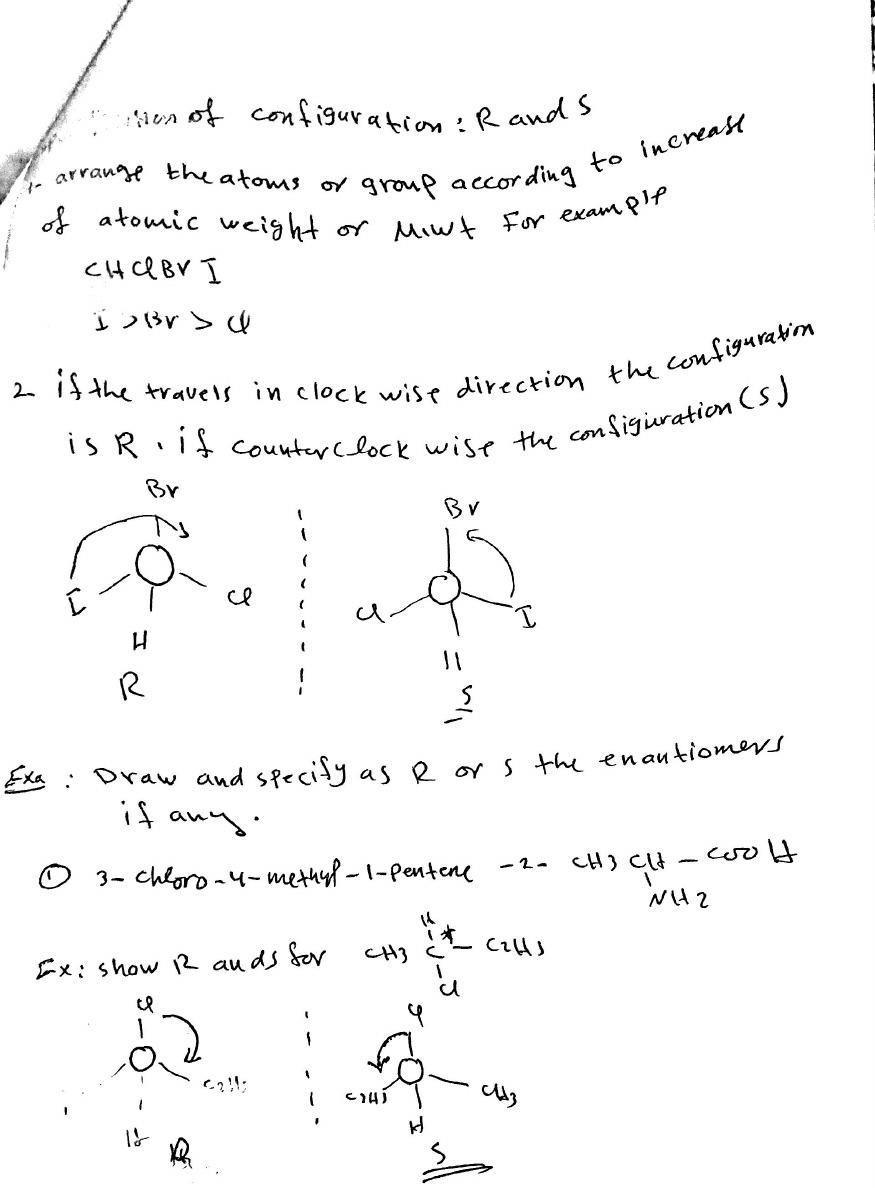 of configuration : R and S
1- arrange the atoms or group according to increase
of atomic weight or M.wt For example
CHClBr I
I > Br > Cl
2 if the travels in clock wise direction the configuration
is R . if counterclock wise the configiuration (S)
Br Br
I Cl Cl I
H H
R S
Exa : Draw and specify as R or s the enantiomers
if any.
① 3- chloro-4-methyl-1-pentene -2- CH3 CH - COOH
NH2
H
Ex: show R and s for CH3 C* - C2H5
Cl
Cl Cl
C2H5 C2H5 CH3
H H
R S